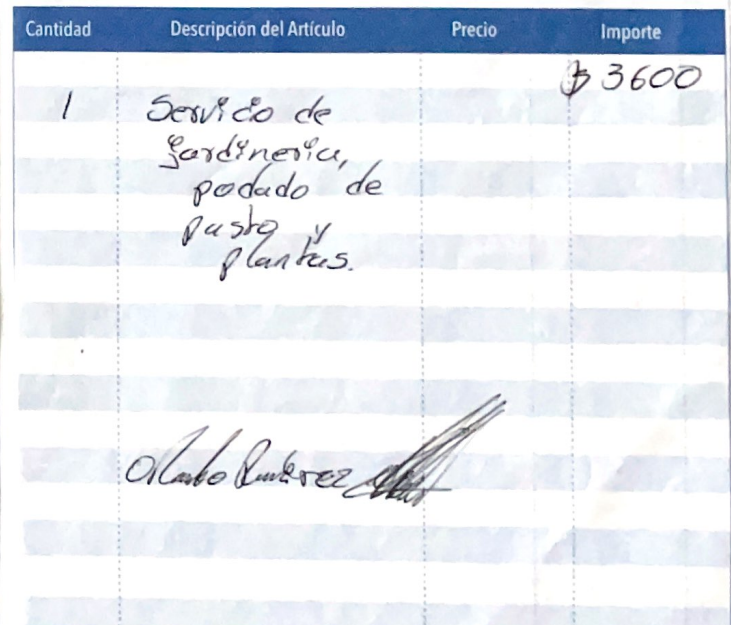 Cantidad Descripción del Artículo Precio Importe
$ 3600
1 Servicio de
jardineria,
podado de
pasto y
plantas.